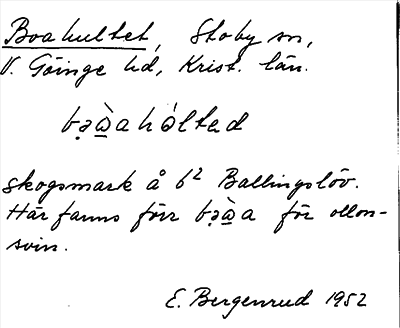 Boahultet, Stoby sn,
V. Göinge hd, Krist. län.
bə̣ὼ̣a hə́ltəd
skogsmark å 6² Ballingslöv.
Här fanns förr bə̣ὼ̣a för ollon-
svin.
E. Bergenrud 1952